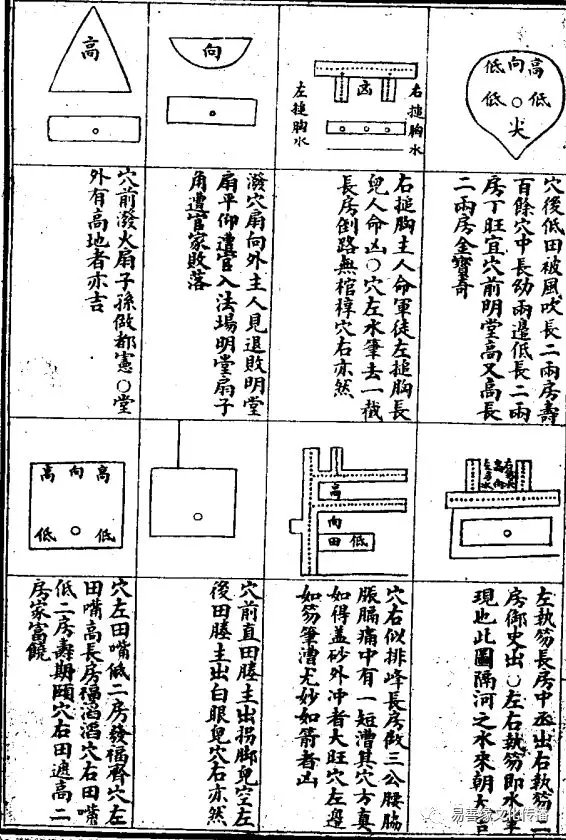 高
向
低
低
尖
穴後低田被風吹長二兩房壽
百餘穴中長幼兩邊低長二兩
房丁旺宜穴前明堂高又高長
二兩房金寶奇
右搥胸水
凶
左搥胸水
右搥胸主人命軍徒左搥胸長
兒人命凶〇穴左水筆去一截
長房倒路無棺椁穴右亦然
向
潑穴扇向外主人見退敗明堂
扇平仰遭官入法場明堂扇子
角遭官家敗落
高
穴前潑火扇子孫做都憲〇堂
外有高地者亦吉
高向
左執笏長房中丞出右執笏二
房御史出〇左右執笏即水木
現也此圖隔河之水來朝大吉
高
向
低
田
穴右似排峰長房做三公腰脇
脹膈痛中有一短漕其穴方真
如得蓋砂外冲者大旺穴左邊
如笏筆漕尤妙如箭者凶
穴前直田塍主出拐脚兒空左
後田塍主出白眼兒穴右亦然
高
向
高
低
低
穴左田嘴低二房發福齊穴左
田嘴高長房福滔滔穴右田嘴
低二房壽期頤穴右田遞高二
房家富饒
易善缘文化传播